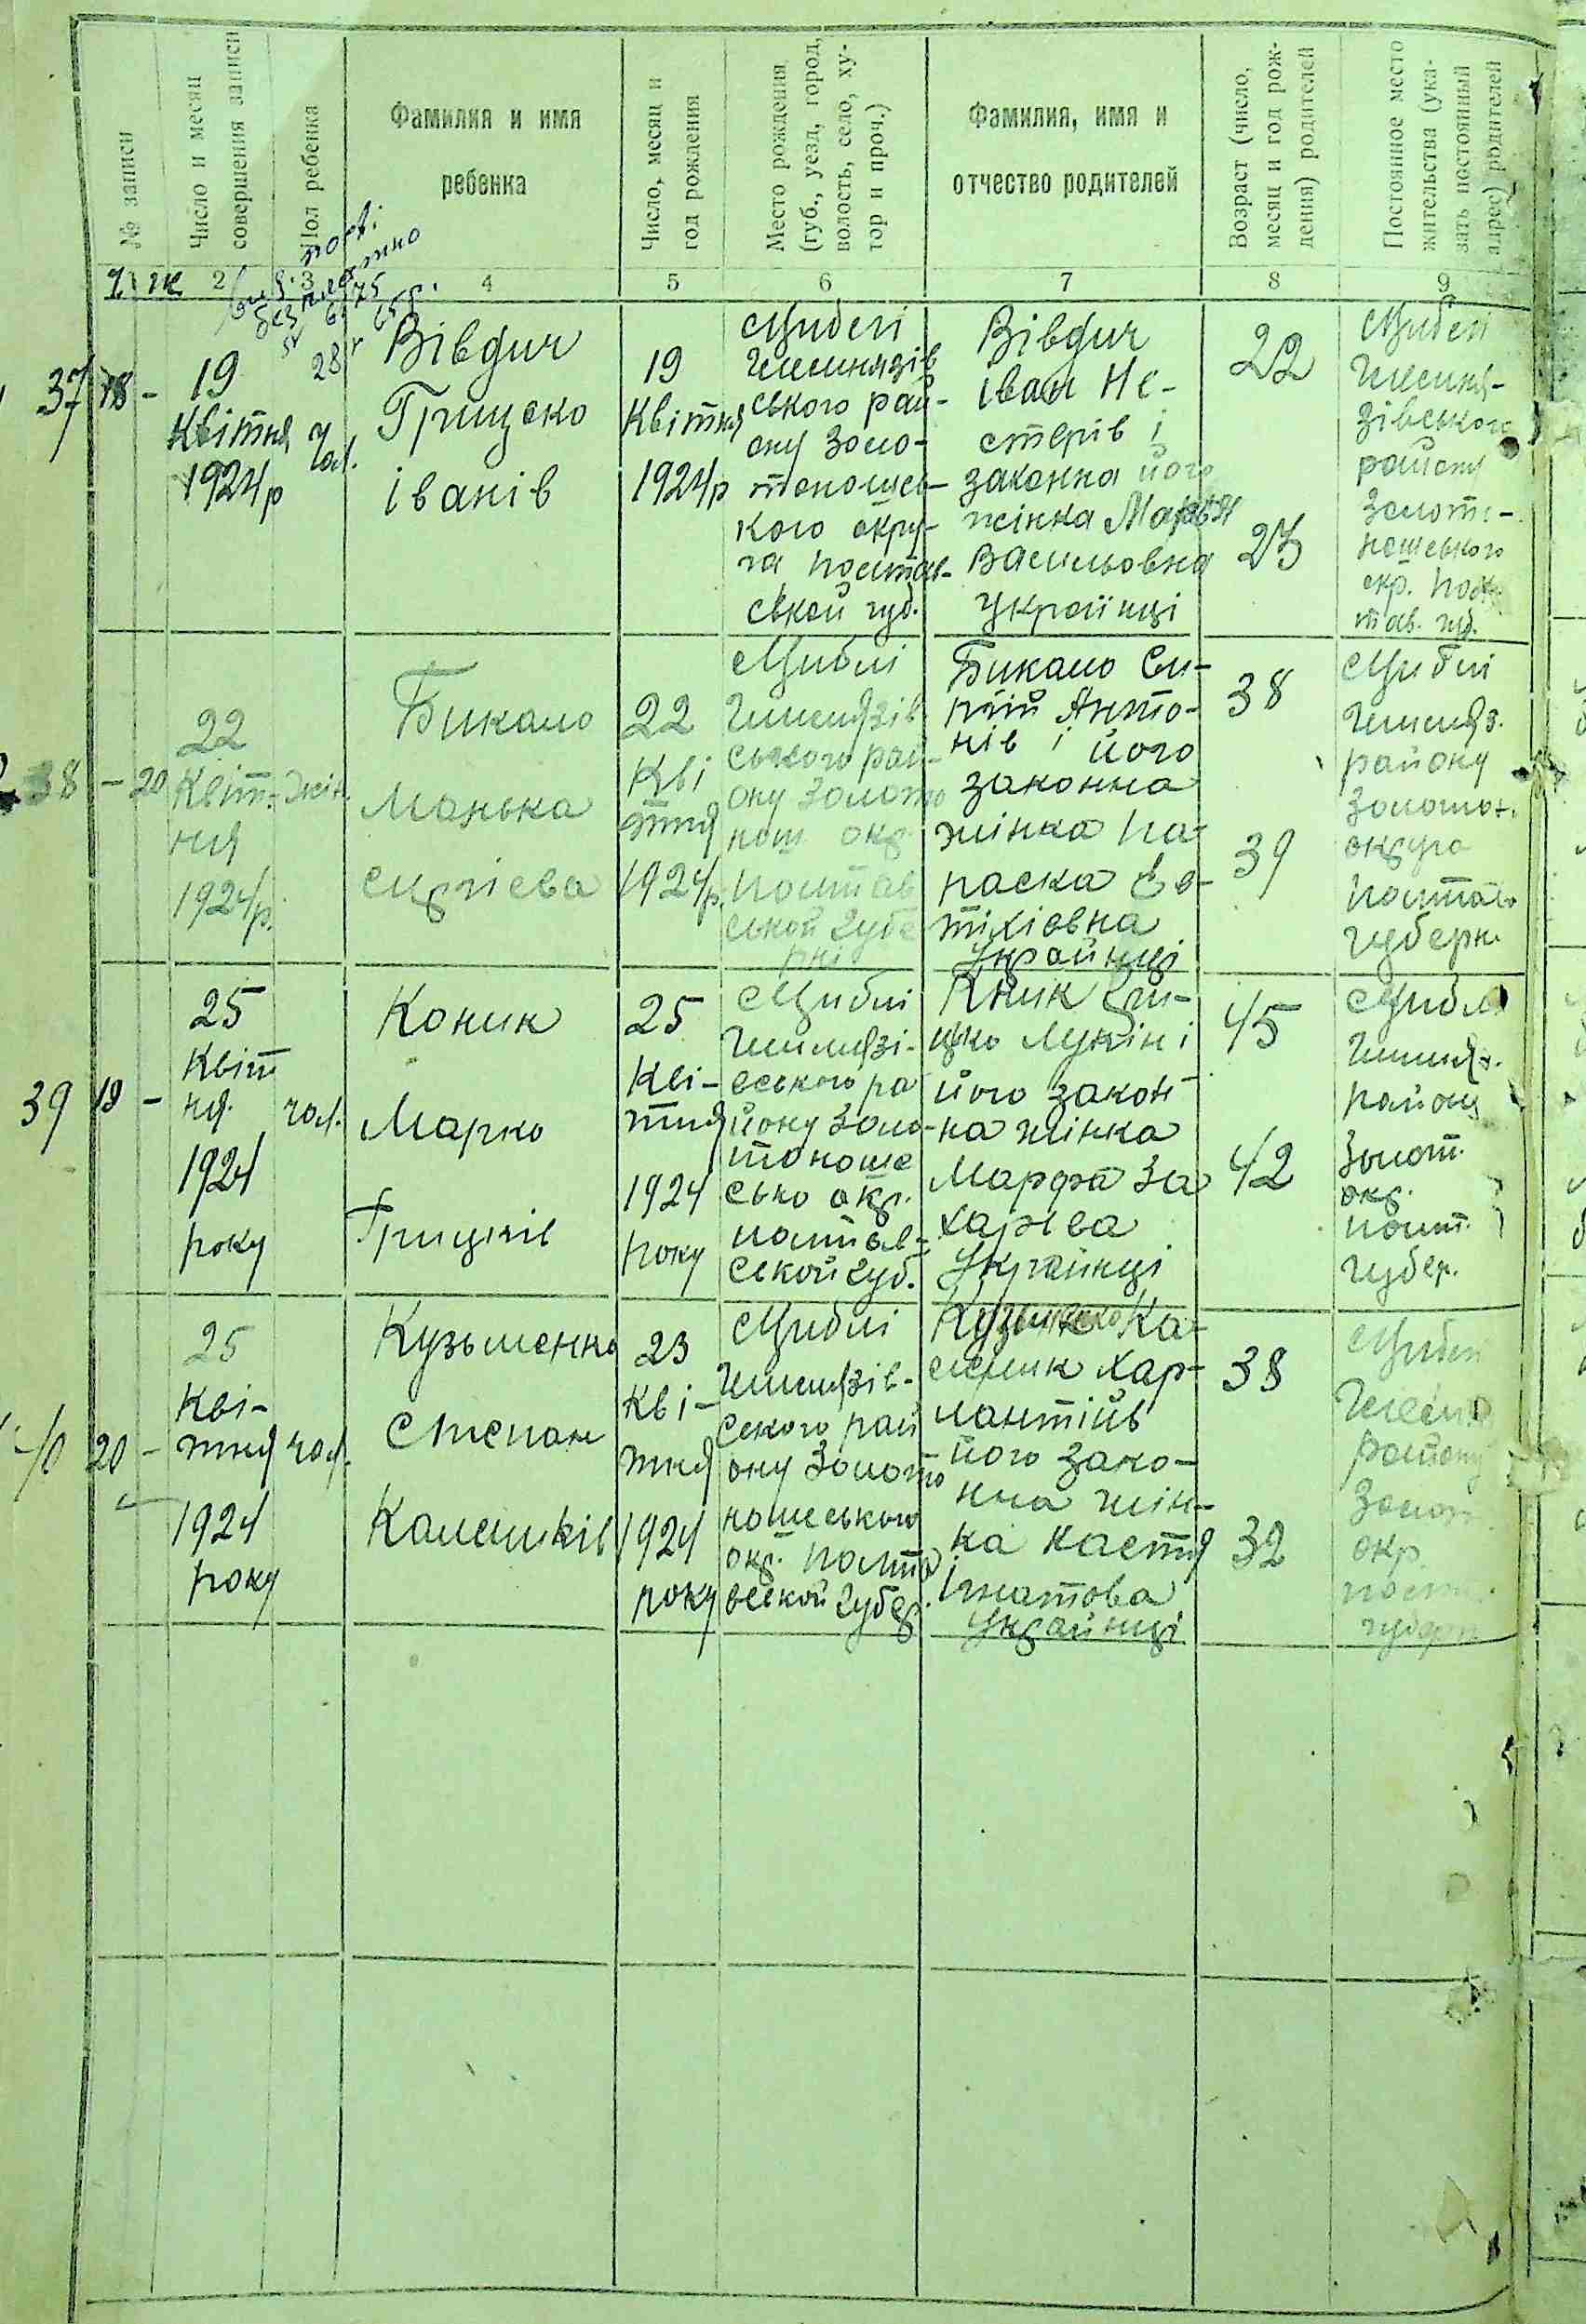 № записи
Число и месяц
совершения записи
Пол ребенка
Фамилия и имя
ребенка
Число, месяц и
год рождения
Место рождения
(губ., уезд, город,
волость, село, ху-
тор и проч.)
Фамилия, имя и
отчество родителей
Возраст (число,
месяц и год рож-
дения) родителей
Постоянное место
жительства (ука-
зать постоянный
адрес) родителей
ч ж 2 3 4 5 6 7 8 9
37 18 -
19
Квітня
1924р
чол.
Вівдич
Грицько
іванів
19
Квітня
1924р
Циблі
ського рай-
ону Золо-
тоношсь-
кого окру-
га Полтав-
ськой губ.
Вівдич
іван Не-
стерів і
законна його
жінка
Васильовна
Українці
22
23
Циблі
зівського
району
Золото-
ношського
окр. Пол-
тав. губ.
38 - 20
22
Квіт-
ня
1924р.
жін.
Бикало
Манька
Сергієва
22
Кві
тня
1924р.
Циблі
ського рай-
ону Золото
нош окр
Полтав
ськой губе
рні
Бикало Си-
Анто-
нів і його
законна
жінка Па-
раска Ев-
тіхіевна
Українці
38
39
Циблі
району
Золотон.
округа
Полтав
губерн.
39 19 -
25
Квіт
ня.
1924
року
чол.
Коник
Марко
Грицьків
25
Кві-
тня
1924
року
Циблі
ського ра
йону Золо-
тоноше
сько окр.
Полтав-
ской губ.
Кник Гри-
цько Лукін і
його закон-
на жінка
Марфа За
харіева
Українці
45
42
Циблі
району
Золот.
окр.
Полт.
губер.
40 20 -
25
Кві-
тня
1924
року
чол.
Кузьменко
Степан
Калеників
23
Кві-
тня
1924
року
Циблі
ского рай
ону Золото
ношського
окр. Полта
вской губер.
Кузьменко Ка-
леник Хар-
лантіїв
його зако-
нна жін-
ка Настя
Ігнатова
Українці
38
32
Циблі
району
Золот.
окр.
Полт.
губерн